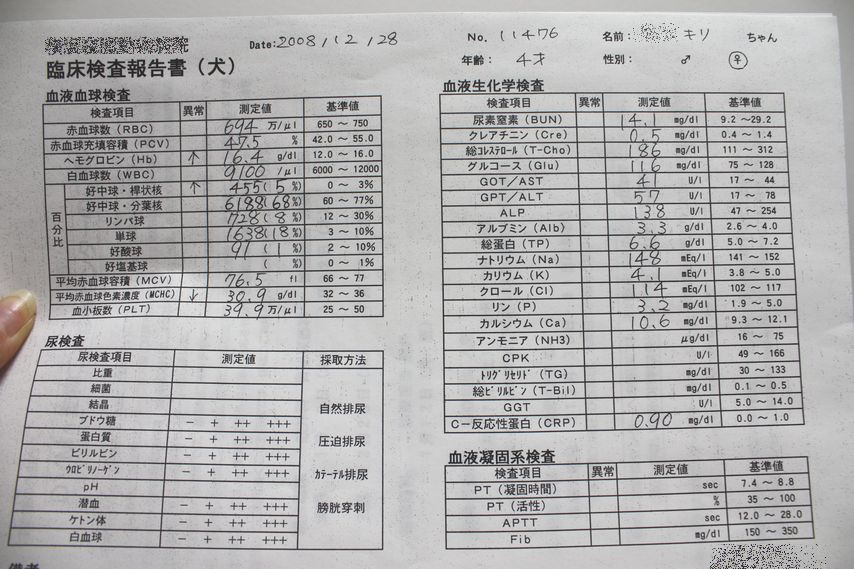 Date: 2008 / 12 / 28
No. 11476
名前: キリ ちゃん
臨床検査報告書(犬)
年齢: 4才
性別: ♂ ♀
血液血球検査
検査項目 異常 測定値 基準値
赤血球数(RBC) 694 万/μl 650 ~ 750
赤血球充填容積(PCV) 47.5 % 42.0 ~ 55.0
ヘモグロビン(Hb) ↑ 16.4 g/dl 12.0 ~ 16.0
白血球数(WBC) 9100 /μl 6000 ~ 12000
百分比
好中球・桿状核 ↑ 455( 5 %) 0 ~ 3%
好中球・分葉核 6188( 68 %) 60 ~ 77%
リンパ球 728( 8 %) 12 ~ 30%
単球 1638( 18 %) 3 ~ 10%
好酸球 91 ( 1 %) 2 ~ 10%
好塩基球 ( %) 0 ~ 1%
平均赤血球容積(MCV) 76.5 fl 66 ~ 77
平均赤血球色素濃度(MCHC) ↓ 30.9 g/dl 32 ~ 36
血小板数(PLT) 39.9 万/μl 25 ~ 50
尿検査
尿検査項目 測定値 採取方法
比重
細菌
結晶 自然排尿
ブドウ糖 - + ++ +++
蛋白質 - + ++ +++ 圧迫排尿
ビリルビン - + ++ +++
ウロビリノーゲン - + ++ +++ カテーテル排尿
pH
潜血 - + ++ +++ 膀胱穿刺
ケトン体 - + ++ +++
白血球 - + ++ +++
血液生化学検査
検査項目 異常 測定値 基準値
尿素窒素(BUN) 14.1 mg/dl 9.2 ~29.2
クレアチニン(Cre) 0.5 mg/dl 0.4 ~ 1.4
総コレステロール(T-Cho) 186 mg/dl 111 ~ 312
グルコース(Glu) 116 mg/dl 75 ~ 128
GOT/AST 41 U/l 17 ~ 44
GPT/ALT 57 U/l 17 ~ 78
ALP 138 U/l 47 ~ 254
アルブミン(Alb) 3.3 g/dl 2.6 ~ 4.0
総蛋白(TP) 6.6 g/dl 5.0 ~ 7.2
ナトリウム(Na) 148 mEq/l 141 ~ 152
カリウム(K) 4.1 mEq/l 3.8 ~ 5.0
クロール(Cl) 114 mEq/l 102 ~ 117
リン(P) 3.2 mg/dl 1.9 ~ 5.0
カルシウム(Ca) 10.6 mg/dl 9.3 ~ 12.1
アンモニア(NH3) μg/dl 16 ~ 75
CPK U/l 49 ~ 166
トリグリセリド(TG) mg/dl 30 ~ 133
総ビリルビン(T-Bil) mg/dl 0.1 ~ 0.5
GGT U/l 5.0 ~ 14.0
C-反応性蛋白(CRP) 0.90 mg/dl 0.0 ~ 1.0
血液凝固系検査
検査項目 異常 測定値 基準値
PT(凝固時間) sec 7.4 ~ 8.8
PT(活性) % 35 ~ 100
APTT sec 12.0 ~ 28.0
Fib mg/dl 150 ~ 350